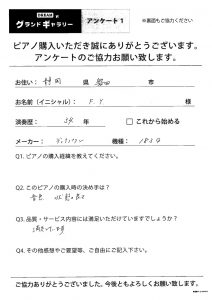 グランドギャラリー アンケート1 ※裏面もご協力ください
ピアノ購入いただき誠にありがとうございます。
アンケートのご協力お願い致します。
お住い： 静岡 県 磐田 市
お名前（イニシャル）： F.Y 様
演奏歴： 年 □ これから始める
メーカー： 機種：
Q1. ピアノの購入経緯を教えてください。
Q2. このピアノの購入時の決め手は？
音色
Q3. 品質・サービス内容には満足いただけていますでしょうか？
Q4. その他感想やご要望等、ご自由にご記入下さい。
ご協力ありがとうございました。今後ともよろしくお願い致します。